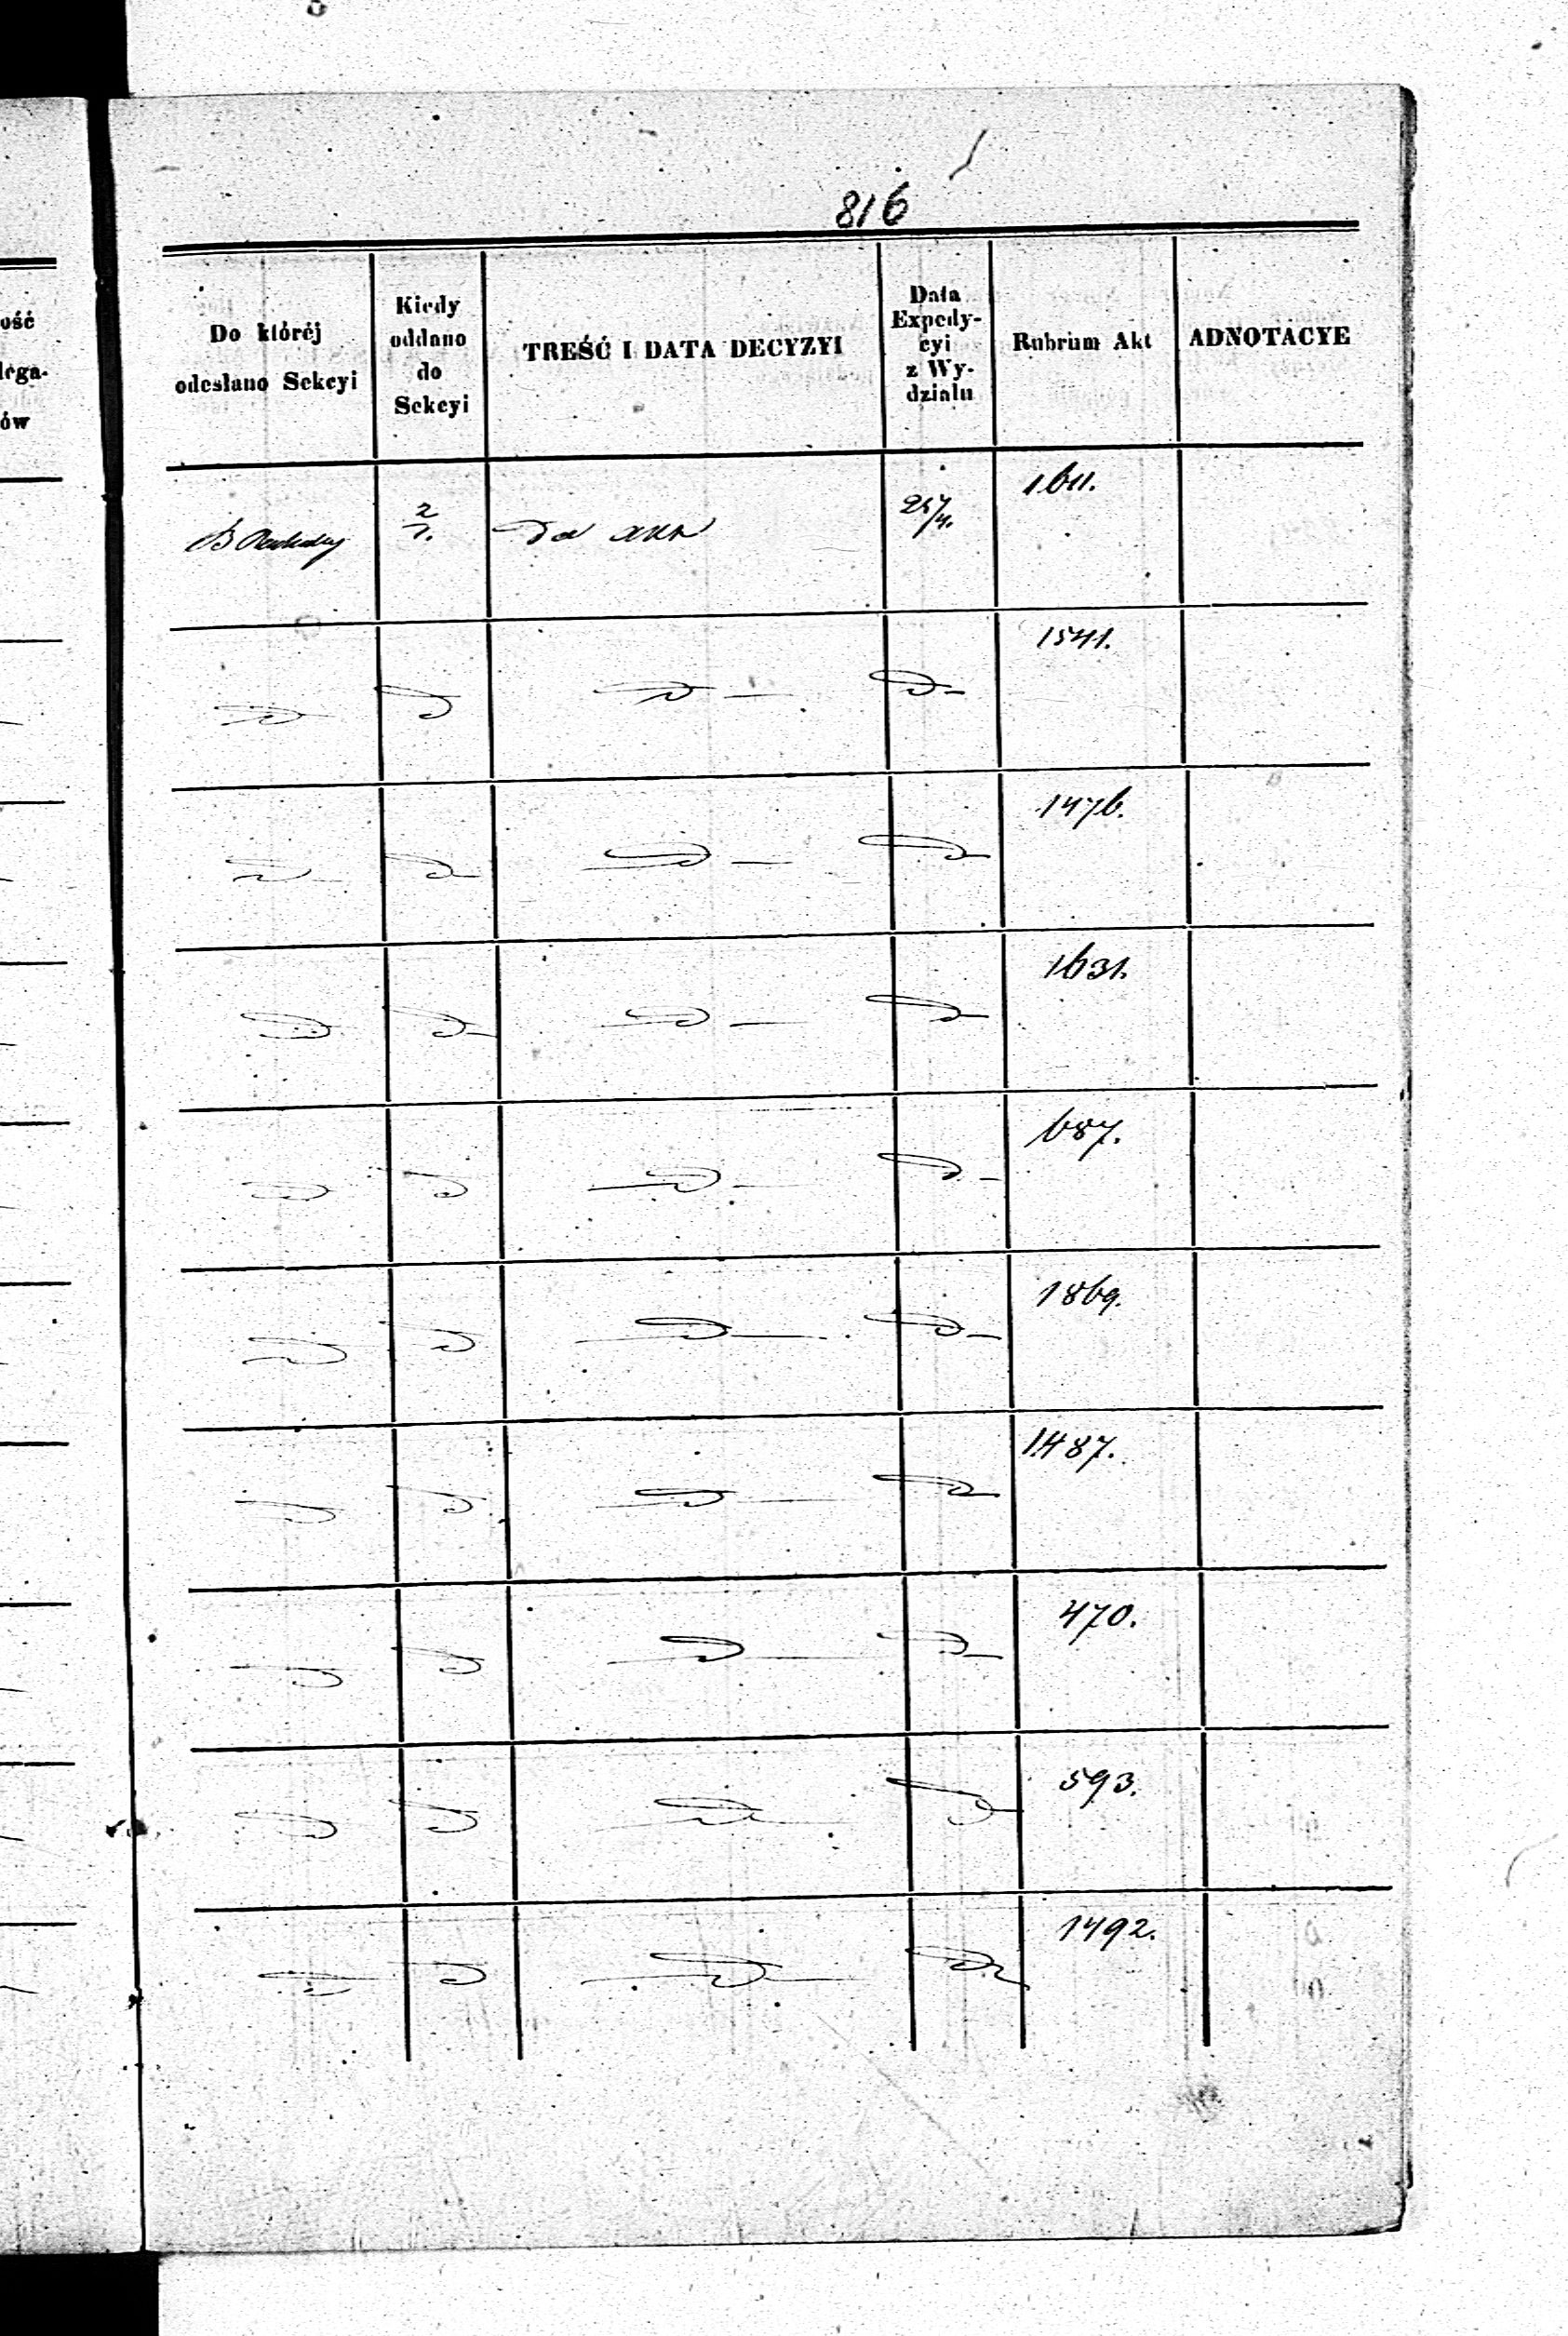 816
ość
lega-
ów
Do któréj
odesłano Sekcyi
Kiedy
oddano
do
Sekcyi
TREŚĆ I DATA DECYZYI
Data
Expedy-
cyi
z Wy-
działu
Rubrum Akt
ADNOTACYE
1611.
B
2/7.
Do akt
25/4.
1541.
1476.
1631.
687.
1869.
1487.
470.
593.
1492.